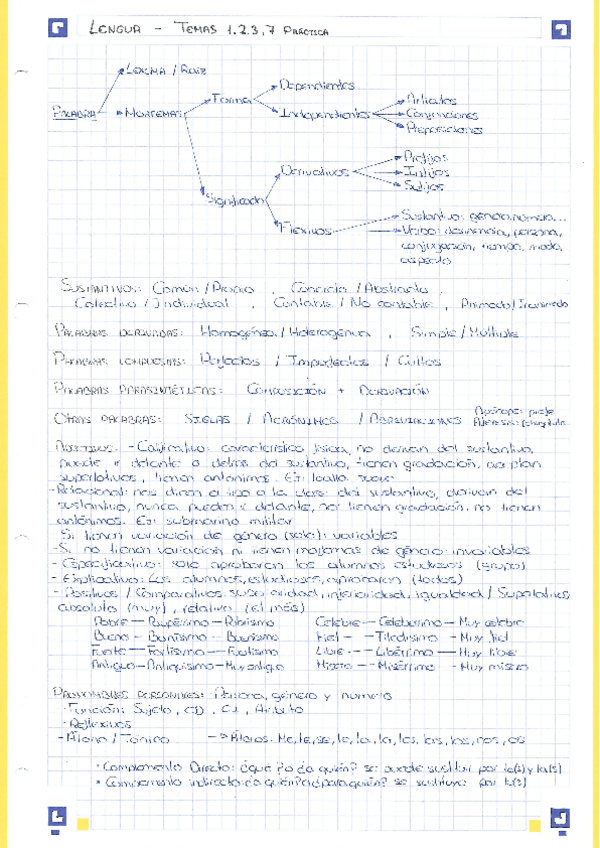 LENGUA - TEMAS 1.2.3.7 PRÁCTICA
LEXEMA / RAIZ
PALABRA
MORFEMAS
Forma
Dependientes
Independientes
Artículos
Conjunciones
Preposiciones
Significado
Derivativos
Prefijos
Infijos
Sufijos
Flexivos
Sustantivo: género, número...
Verbo: desinencia, persona,
conjugación, tiempo, modo,
aspecto
SUSTANTIVOS: Común / Propio , Concreto / Abstracto ,
Colectivo / Individual , Contable / No contable , Animado / Inanimado
PALABRAS DERIVADAS: Homogénea / Heterogénea , Simple / Múltiple
PALABRAS COMPUESTAS: Perfectos / Imperfectos / Cultos
PALABRAS PARASINTÉTICAS: COMPOSICIÓN + DERIVACIÓN
OTRAS PALABRAS: SIGLAS / ACRÓNIMOS / ABREVIACIONES Apócope: profe
ADJETIVOS: - Calificativo: característica física, no derivan del sustantivo,
puede ir delante o detrás del sustantivo, tienen gradación, aceptan
superlativos, tienen antónimos. Ej: toalla suave
- Relacional: nos dicen el uso o la clase del sustantivo, derivan del
sustantivo, nunca pueden ir delante, no tienen gradación, no tienen
antónimos. Ej: submarino militar
- Si tienen variación de género (solo): variables
- Si no tienen variación ni tienen morfemas de género: invariables
- Especificativo: solo aprobaron los alumnos estudiosos (grupo)
- Explicativo: Los alumnos, estudiosos, aprobaron (todos)
- Positivos / Comparativos: superioridad, inferioridad, igualdad / Superlativos
absoluto (muy), relativo (el más)
Pobre — Paupérrimo — Pobrísimo
Celebre — Celebérrimo — Muy celebre
Bueno — Bonísimo — Buenísimo
Fiel — Fidelísimo — Muy fiel
Fuerte — Fortísimo — Fuertísimo
Libre — Libérrimo — Muy libre
Antiguo — Antiquísimo — Muy antiguo
Mísero — Misérrimo — Muy mísero
PRONOMBRES PERSONALES: Persona, género y número
- Función: Sujeto, CD, CI, Atributo
- Reflexivos
- Átono / Tónico -> Átonos: Me, te, se, le, lo, la, les, las, los, nos, os
• Complemento Directo: ¿qué? o ¿a quién? se puede sustituir por lo(s) y la(s)
• Complemento indirecto: ¿a quién? o ¿para quién? se sustituye por le(s)